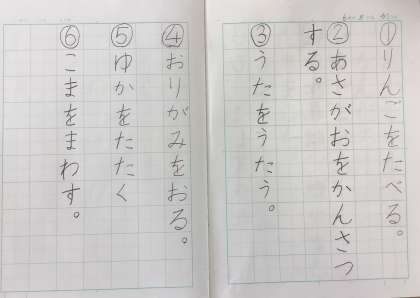 ①りんごをたべる。
②あさがおをかんさつ
する。
③うたをうたう。
④おりがみをおる。
⑤ゆかをたたく
⑥こまをまわす。